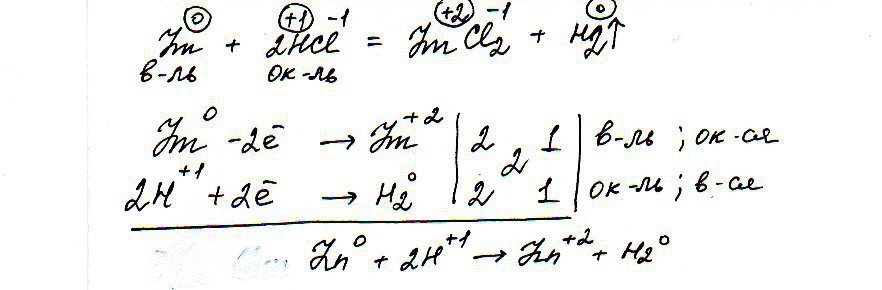 Zn⁰ + 2H⁺¹Cl⁻¹ = Zn⁺²Cl₂⁻¹ + H₂⁰↑
в-ль ок-ль
Zn⁰ -2ē → Zn⁺² | 2 2 1 | в-ль ; ок-ся
2H⁺¹ +2ē → H₂⁰ | 2 1 | ок-ль ; в-ся
Zn⁰ + 2H⁺¹ → Zn⁺² + H₂⁰